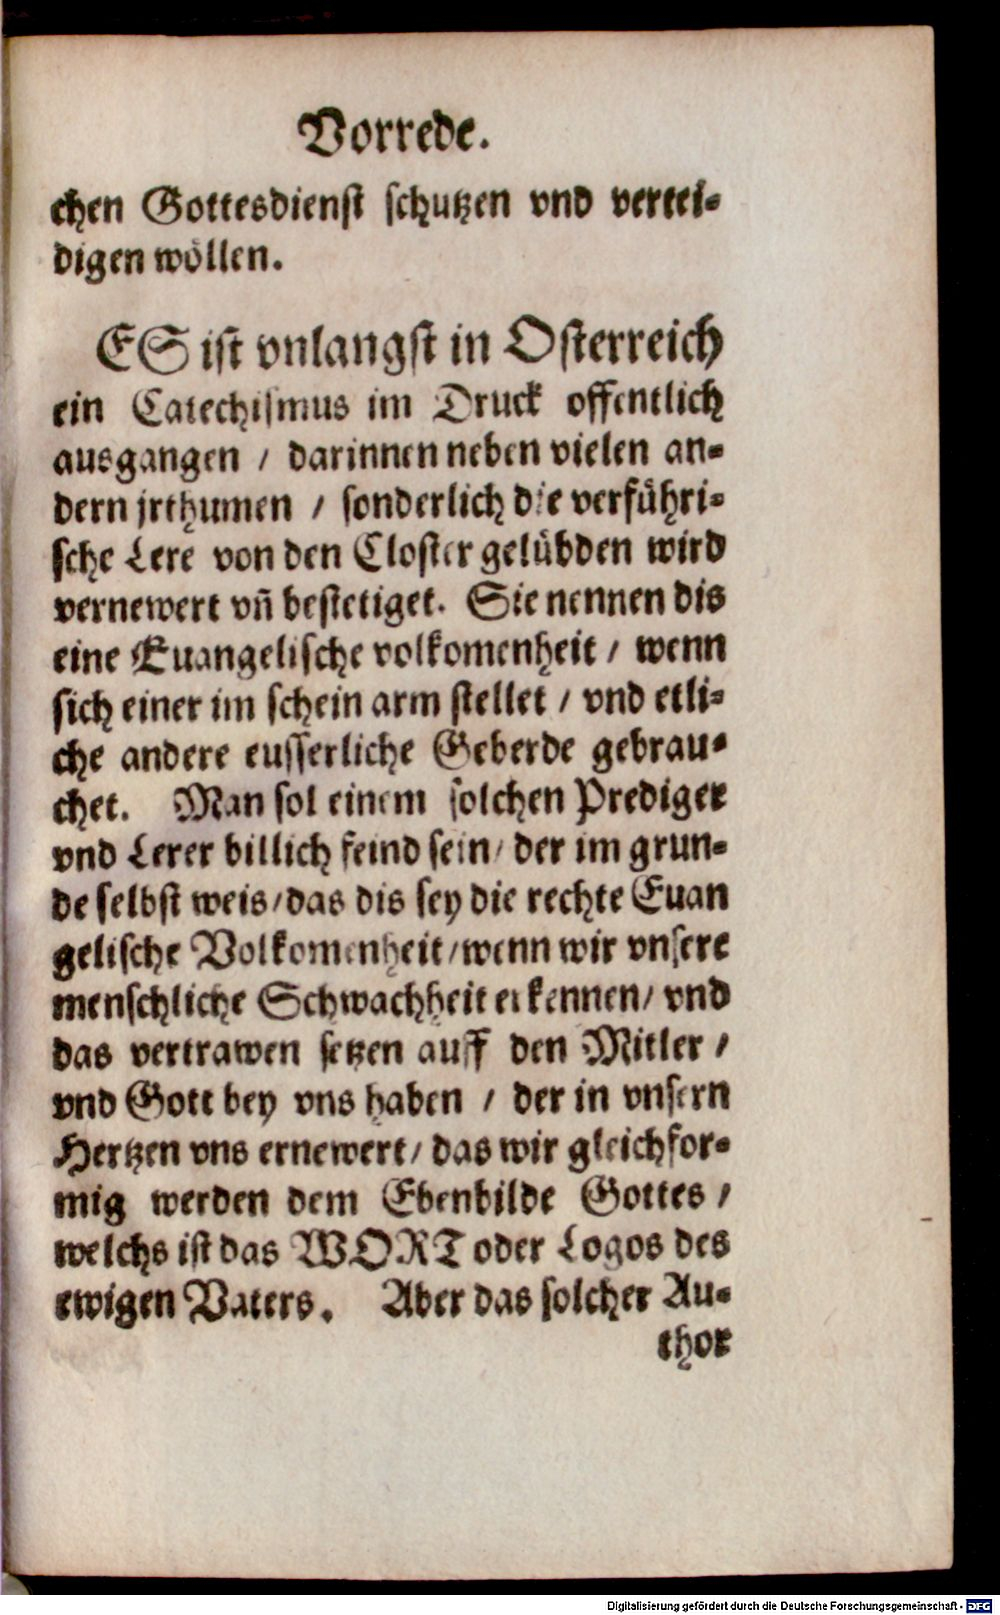 Vorrede.
chen Gottesdienst schutzen vnd vertei-
digen wöllen.
ES ist vnlangst in Osterreich
ein Catechismus im Druck offentlich
ausgangen / darinnen neben vielen an-
dern jrthumen / sonderlich die verführi-
sche Lere von den Closter gelübden wird
vernewert vn̄ bestetiget. Sie nennen dis
eine Euangelische volkomenheit / wenn
sich einer im schein arm stellet / vnd etli-
che andere eusserliche Geberde gebrau-
chet. Man sol einem solchen Prediger
vnd Lerer billich feind sein / der im grun-
de selbst weis / das dis sey die rechte Euan
gelische Volkomenheit / wenn wir vnsere
menschliche Schwachheit erkennen / vnd
das vertrawen setzen auff den Mitler /
vnd Gott bey vns haben / der in vnsern
Hertzen vns ernewert / das wir gleichfor-
mig werden dem Ebenbilde Gottes /
welchs ist das WORT oder Logos des
ewigen Vaters. Aber das solcher Au-
thor
Digitalisierung gefördert durch die Deutsche Forschungsgemeinschaft - DFG